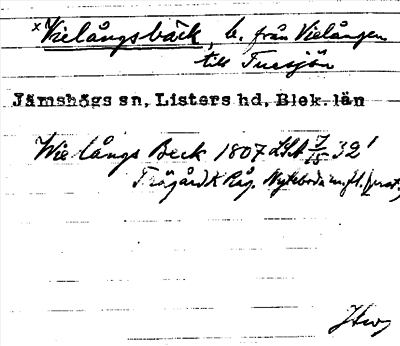 ×Vielångsbäck, b. från Vielången
till Tuesjön
Jämshögs sn, Listers hd, Blek. län
Wielångs Beck 1807 LSA 7/18 32¹
Trägård K Råg. Nyteboda m. fl.